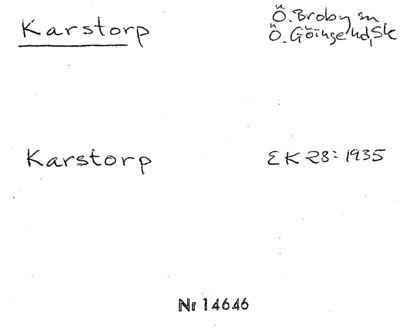 Karstorp
Ö. Broby sn
Ö. Göinge hd, Sk
Karstorp
EK 28: 1935
Nr 14646